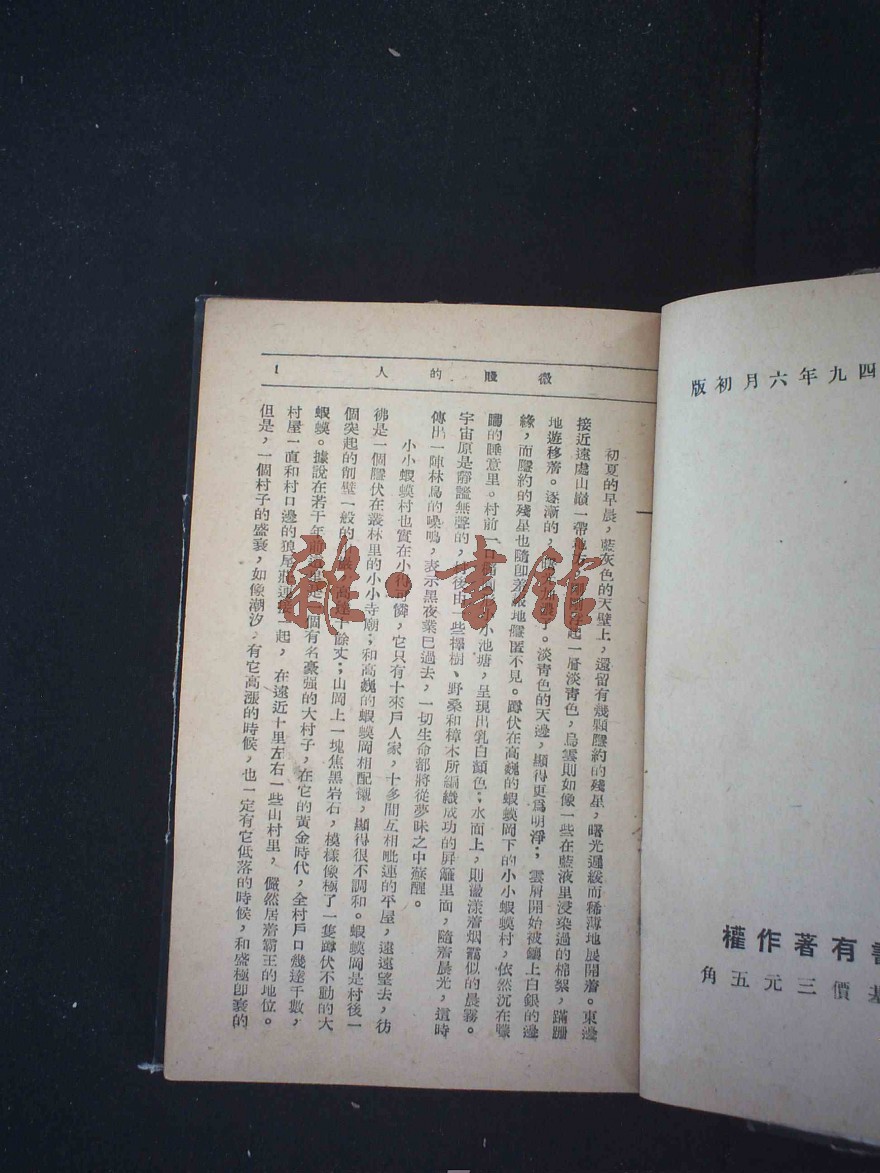 四九年六月初版
有著作權
基價三元五角
微賤的人 1
一
初夏的早晨，藍灰色的天壁上，還留有幾顆隱約的殘星，曙光遲緩而稀薄地展開着。東邊
接近遠處山巓一帶 起一層淡青色，烏雲則如像一些在藍液里浸染過的棉絮，蹣跚
地遊移着。逐漸的， 淡青色的天邊，顯得更爲明淨；雲層開始被鑲上白銀的邊
緣，而隱約的殘星也隨卽羞 地隱匿不見。蹲伏在高巍的蝦蟆岡下的小小蝦蟆村，依然沉在矇
矓的睡意里。村前一 小池塘，呈現出乳白顏色；水面上，則瀁漾着烟靄似的晨霧。
宇宙原是靜謐無聲的， 後由一些 樹、野桑和樟木所編織成功的屏籬里面，隨着晨光，這時
傳出一陣林鳥的噪鳴，表示黑夜業已過去，一切生命都將從夢昧之中蘇醒。
小小蝦蟆村也實在小得可憐，它只有十來戶人家，十多間互相毗連的平屋，遠遠望去，彷
彿是一個隱伏在叢林里的小小寺廟；和高巍的蝦蟆岡相配襯，顯得很不調和。蝦蟆岡是村後一
個突起的削壁一般的 高達十餘丈；山岡上一塊焦黑岩石，模樣像極了一隻蹲伏不動的大
蝦蟆。據說在若干年前 個有名豪强的大村子，在它的黃金時代，全村戶口幾達千數，
村屋一直和村口邊的狼尾 起，在遠近十里左右一些山村里，儼然居着霸王的地位。
但是，一個村子的盛衰，如像潮汐，有它高漲的時候，也一定有它低落的時候，和盛極卽衰的
雜·書館